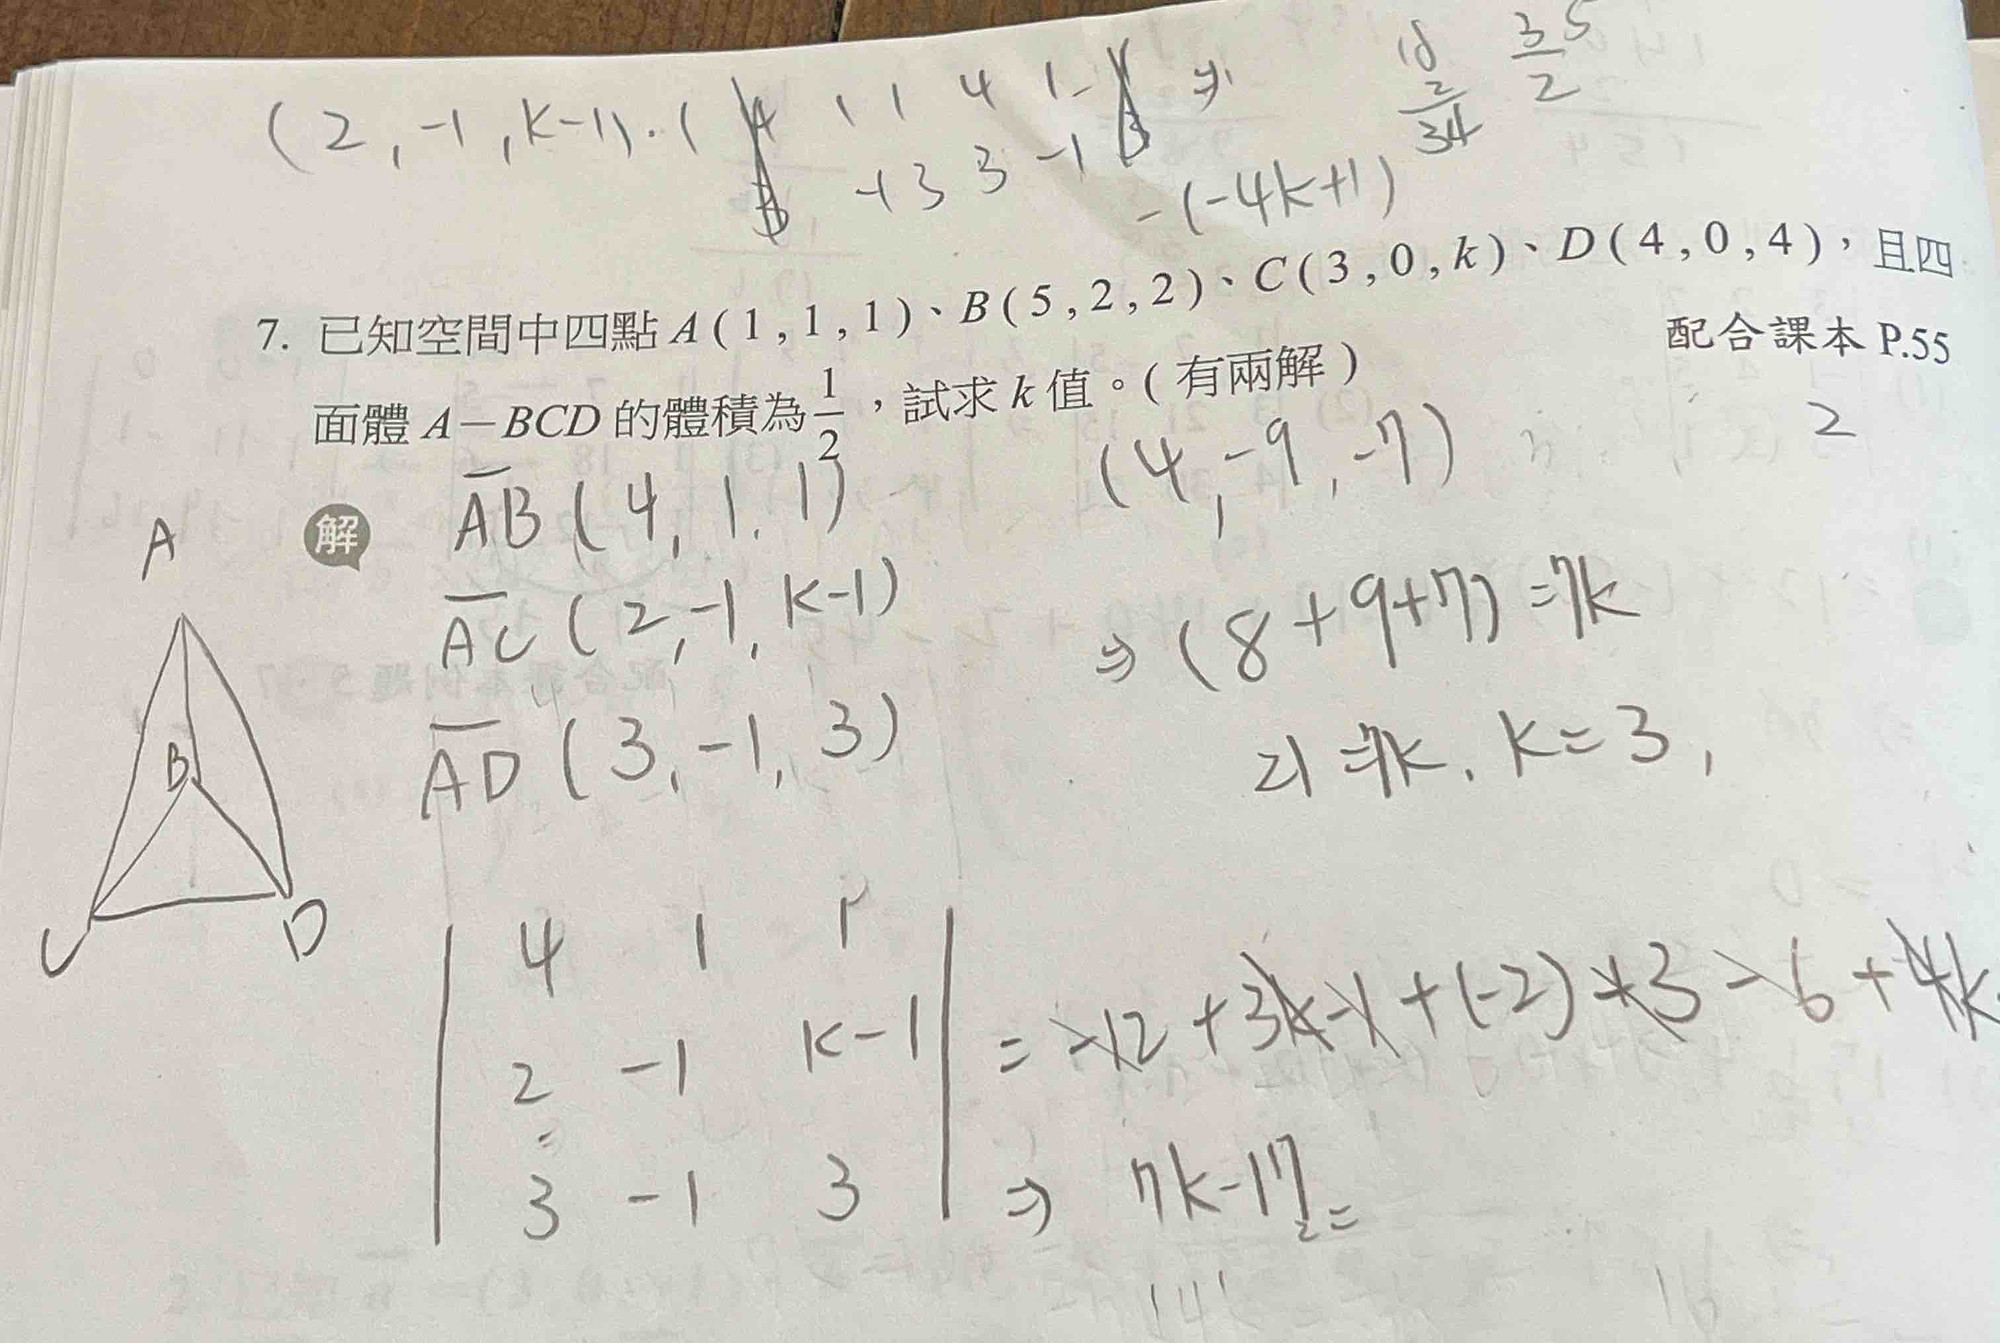 (2, -1, k-1)·( 4 1 1 4 1 1 ⇒
3 -1 3 3 -1 3
-(-4k+1)
2
34
35
2
7. 已知空間中四點 A(1,1,1)、B(5,2,2)、C(3,0,k)、D(4,0,4)，且四
面體 A－BCD 的體積為 1/2，試求 k 值。(有兩解)
配合課本 P.55
2
解
AB (4, 1, 1)
(4, -9, -7)
AC (2, -1, k-1)
⇒ (8+9+7) = 7k
AD (3, -1, 3)
21 = 7k, k = 3,
A
B
C
D
| 4 1 1 |
| 2 -1 k-1 | = -12 + 3k - 1 + (-2) + 3 - 6 + 4k
| 3 -1 3 | ⇒ 7k-17 =